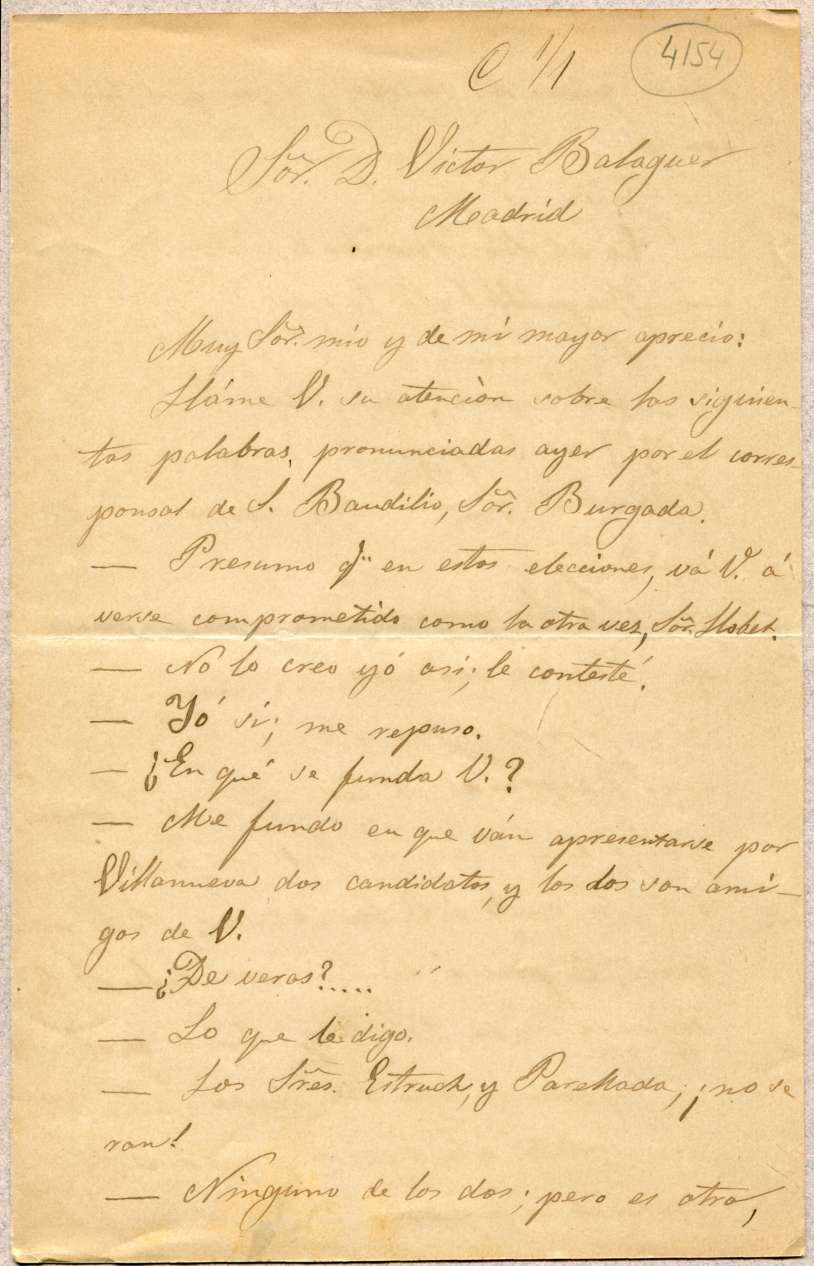 C 1/1 4154
Sor. D. Victor Balaguer
Madrid
Muy Sor. mio y de mi mayor aprecio:
Lláme V. su atenciòn sobre las siguien-
tes palabras, pronunciadas ayer por el corres-
ponsal de S. Baudilio, Sor. Burgada.
— Presumo qe en estas elecciones, vá V. á
verse comprometido como la otra vez, Sor. Llobet.
— No lo creo yó asi; le contesté.
— Yó sí; me repuso.
— ¿En qué se funda V.?
— Me fundo en que ván apresentarse por
Villanueva dos candidatos, y los dos son ami-
gos de V.
— ¿De veras?.....
— Lo que le digo.
— Los Sres. Estruch, y Parellada; ¡no se
ran!
— Ninguno de los dos; pero es otro,